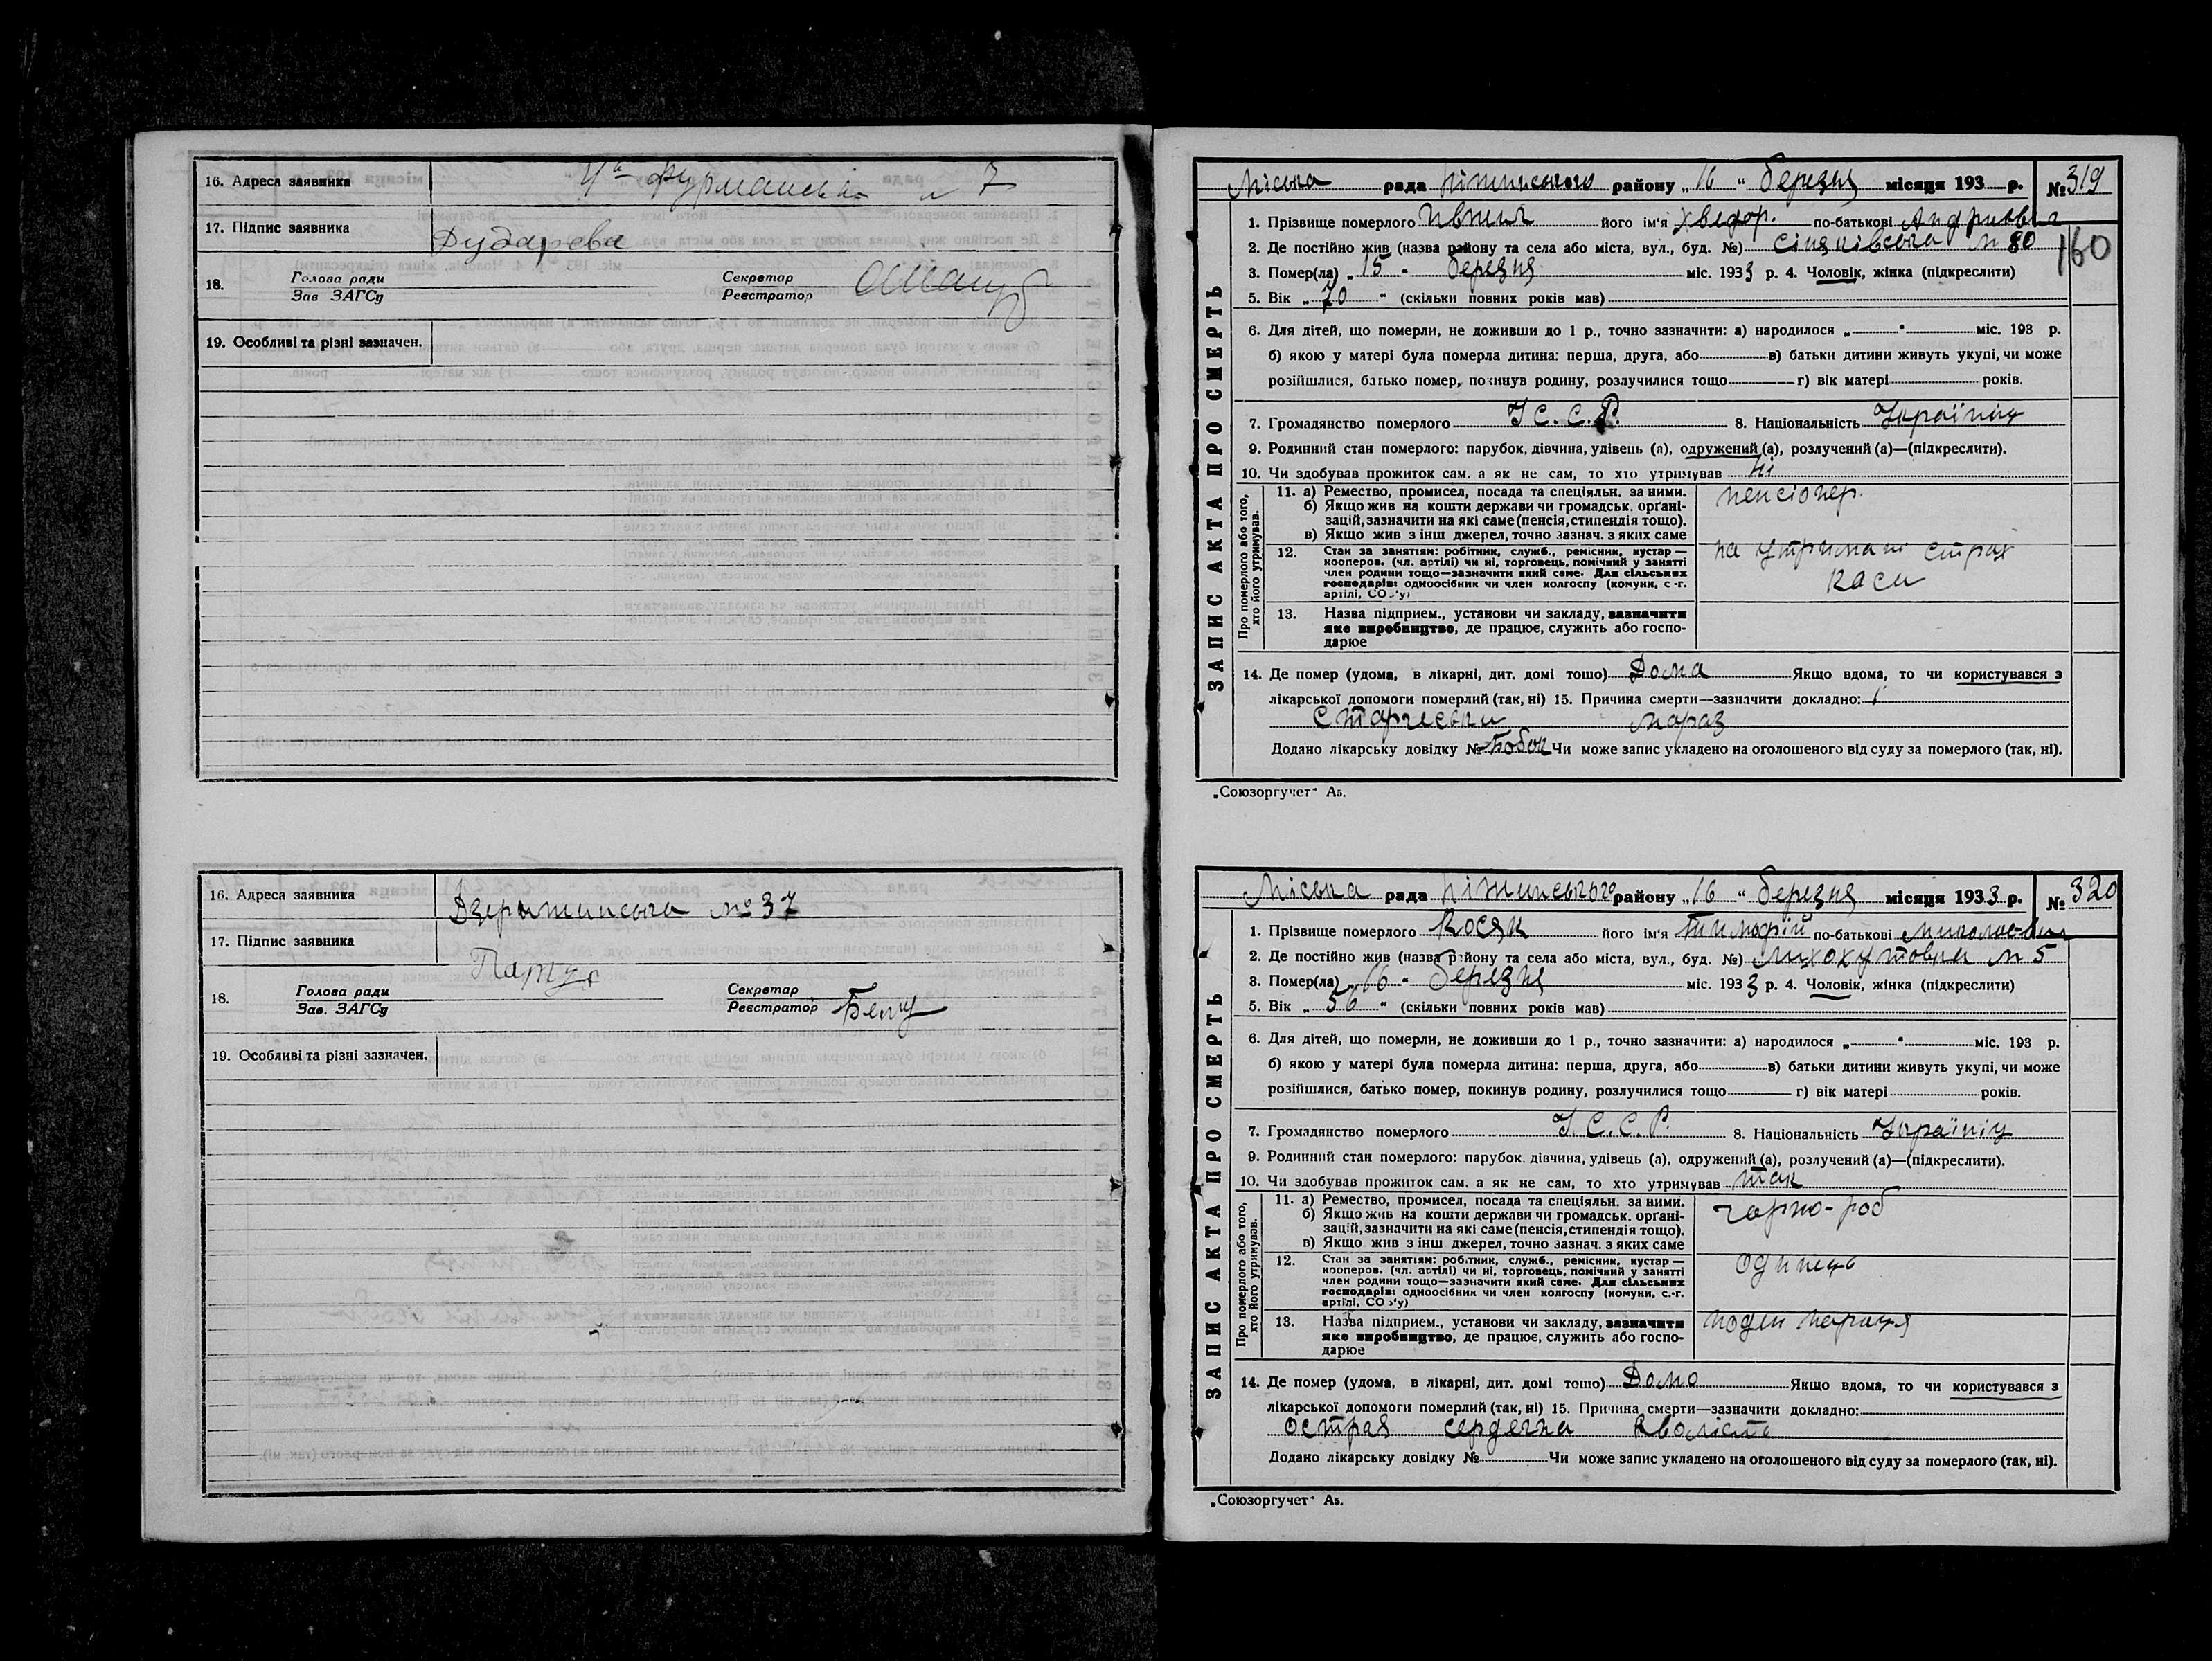 16. Адреса заявника № 7
17. Підпис заявника Дударева
18. Голова ради Секретар
Зав ЗАГСу Реєстратор
19. Особливі та різні зазначен.
16. Адреса заявника Дзержинська № 37
17. Підпис заявника
18. Голова ради Секретар
Зав. ЗАГСу Реєстратор
19. Особливі та різні зазначен.
ЗАПИС АКТА ПРО СМЕРТЬ
Міська рада Ніжинського району „16“ березня місяця 193 р. № 319
1. Прізвище померлого його ім'я Хведор. по-батькові
160
2. Де постійно жив (назва району та села або міста, вул., буд. №) № 80
3. Помер(ла) „15“ березня міс. 1933 р. 4. Чоловік, жінка (підкреслити)
5. Вік „70“ (скільки повних років мав)
6. Для дітей, що померли, не доживши до 1 р., точно зазначити: а) народилося „ “ міс. 193 р.
б) якою у матері була померла дитина: перша, друга, або в) батьки дитини живуть укупі, чи може
розійшлися, батько помер, покинув родину, розлучилися тощо г) вік матері років.
7. Громадянство померлого У С. С. Р. 8. Національність Українець
9. Родинний стан померлого: парубок, дівчина, удівець (а), одружений (а), розлучений (а)—(підкреслити).
10. Чи здобував прожиток сам, а як не сам, то хто утримував Ні
Про померлого або того, хто його утримував.
11. а) Ремество, промисел, посада та спеціяльн. за ними. пенсіонер.
б) Якщо жив на кошти держави чи громадськ. орґані-
зацій, зазначити на які саме (пенсія, стипендія тощо).
в) Якщо жив з інш джерел, точно зазнач. з яких саме
12. Стан за заняттям: робітник, служб., ремісник, кустар — на страх
кооперов. (чл. артілі) чи ні, торговець, помічний у занятті каси
член родини тощо—зазначити який саме. Для сільських
господарів: одноосібник чи член колгоспу (комуни, с.-г.
артілі, СОЗ'у)
13. Назва підприєм., установи чи закладу, зазначити
яке виробництво, де працює, служить або госпо-
дарює
14. Де помер (удома, в лікарні, дит. домі тощо) Дома Якщо вдома, то чи користувався з
лікарської допомоги померлий (так, ні) 15. Причина смерти—зазначити докладно:
мараз
Додано лікарську довідку № Чи може запис укладено на оголошеного від суду за померлого (так, ні).
„Союзоргучет“ А5.
ЗАПИС АКТА ПРО СМЕРТЬ
Міська рада Ніжинського району „16“ березня місяця 1933 р. № 320
1. Прізвище померлого Косяк його ім'я Тимофій по-батькові
2. Де постійно жив (назва району та села або міста, вул., буд. №) № 5
3. Помер(ла) „16“ березня міс. 1933 р. 4. Чоловік, жінка (підкреслити)
5. Вік „56“ (скільки повних років мав)
6. Для дітей, що померли, не доживши до 1 р., точно зазначити: а) народилося „ “ міс. 193 р.
б) якою у матері була померла дитина: перша, друга, або в) батьки дитини живуть укупі, чи може
розійшлися, батько помер, покинув родину, розлучилися тощо г) вік матері років.
7. Громадянство померлого У. С. С. Р. 8. Національність
9. Родинний стан померлого: парубок, дівчина, удівець (а), одружений (а), розлучений (а)—(підкреслити).
10. Чи здобував прожиток сам, а як не сам, то хто утримував так
Про померлого або того, хто його утримував.
11. а) Ремество, промисел, посада та спеціяльн. за ними. чорно-роб
б) Якщо жив на кошти держави чи громадськ. орґані-
зацій, зазначити на які саме (пенсія, стипендія тощо).
в) Якщо жив з інш джерел, точно зазнач. з яких саме
12. Стан за заняттям: робітник, служб., ремісник, кустар — одинець
кооперов. (чл. артілі) чи ні, торговець, помічний у занятті
член родини тощо—зазначити який саме. Для сільських
господарів: одноосібник чи член колгоспу (комуни, с.-г.
артілі, СОЗ'у)
13. Назва підприєм., установи чи закладу, зазначити
яке виробництво, де працює, служить або госпо-
дарює
14. Де помер (удома, в лікарні, дит. домі тощо) Дома Якщо вдома, то чи користувався з
лікарської допомоги померлий (так, ні) 15. Причина смерти—зазначити докладно:
острая сердечна
Додано лікарську довідку № Чи може запис укладено на оголошеного від суду за померлого (так, ні).
„Союзоргучет“ А5.